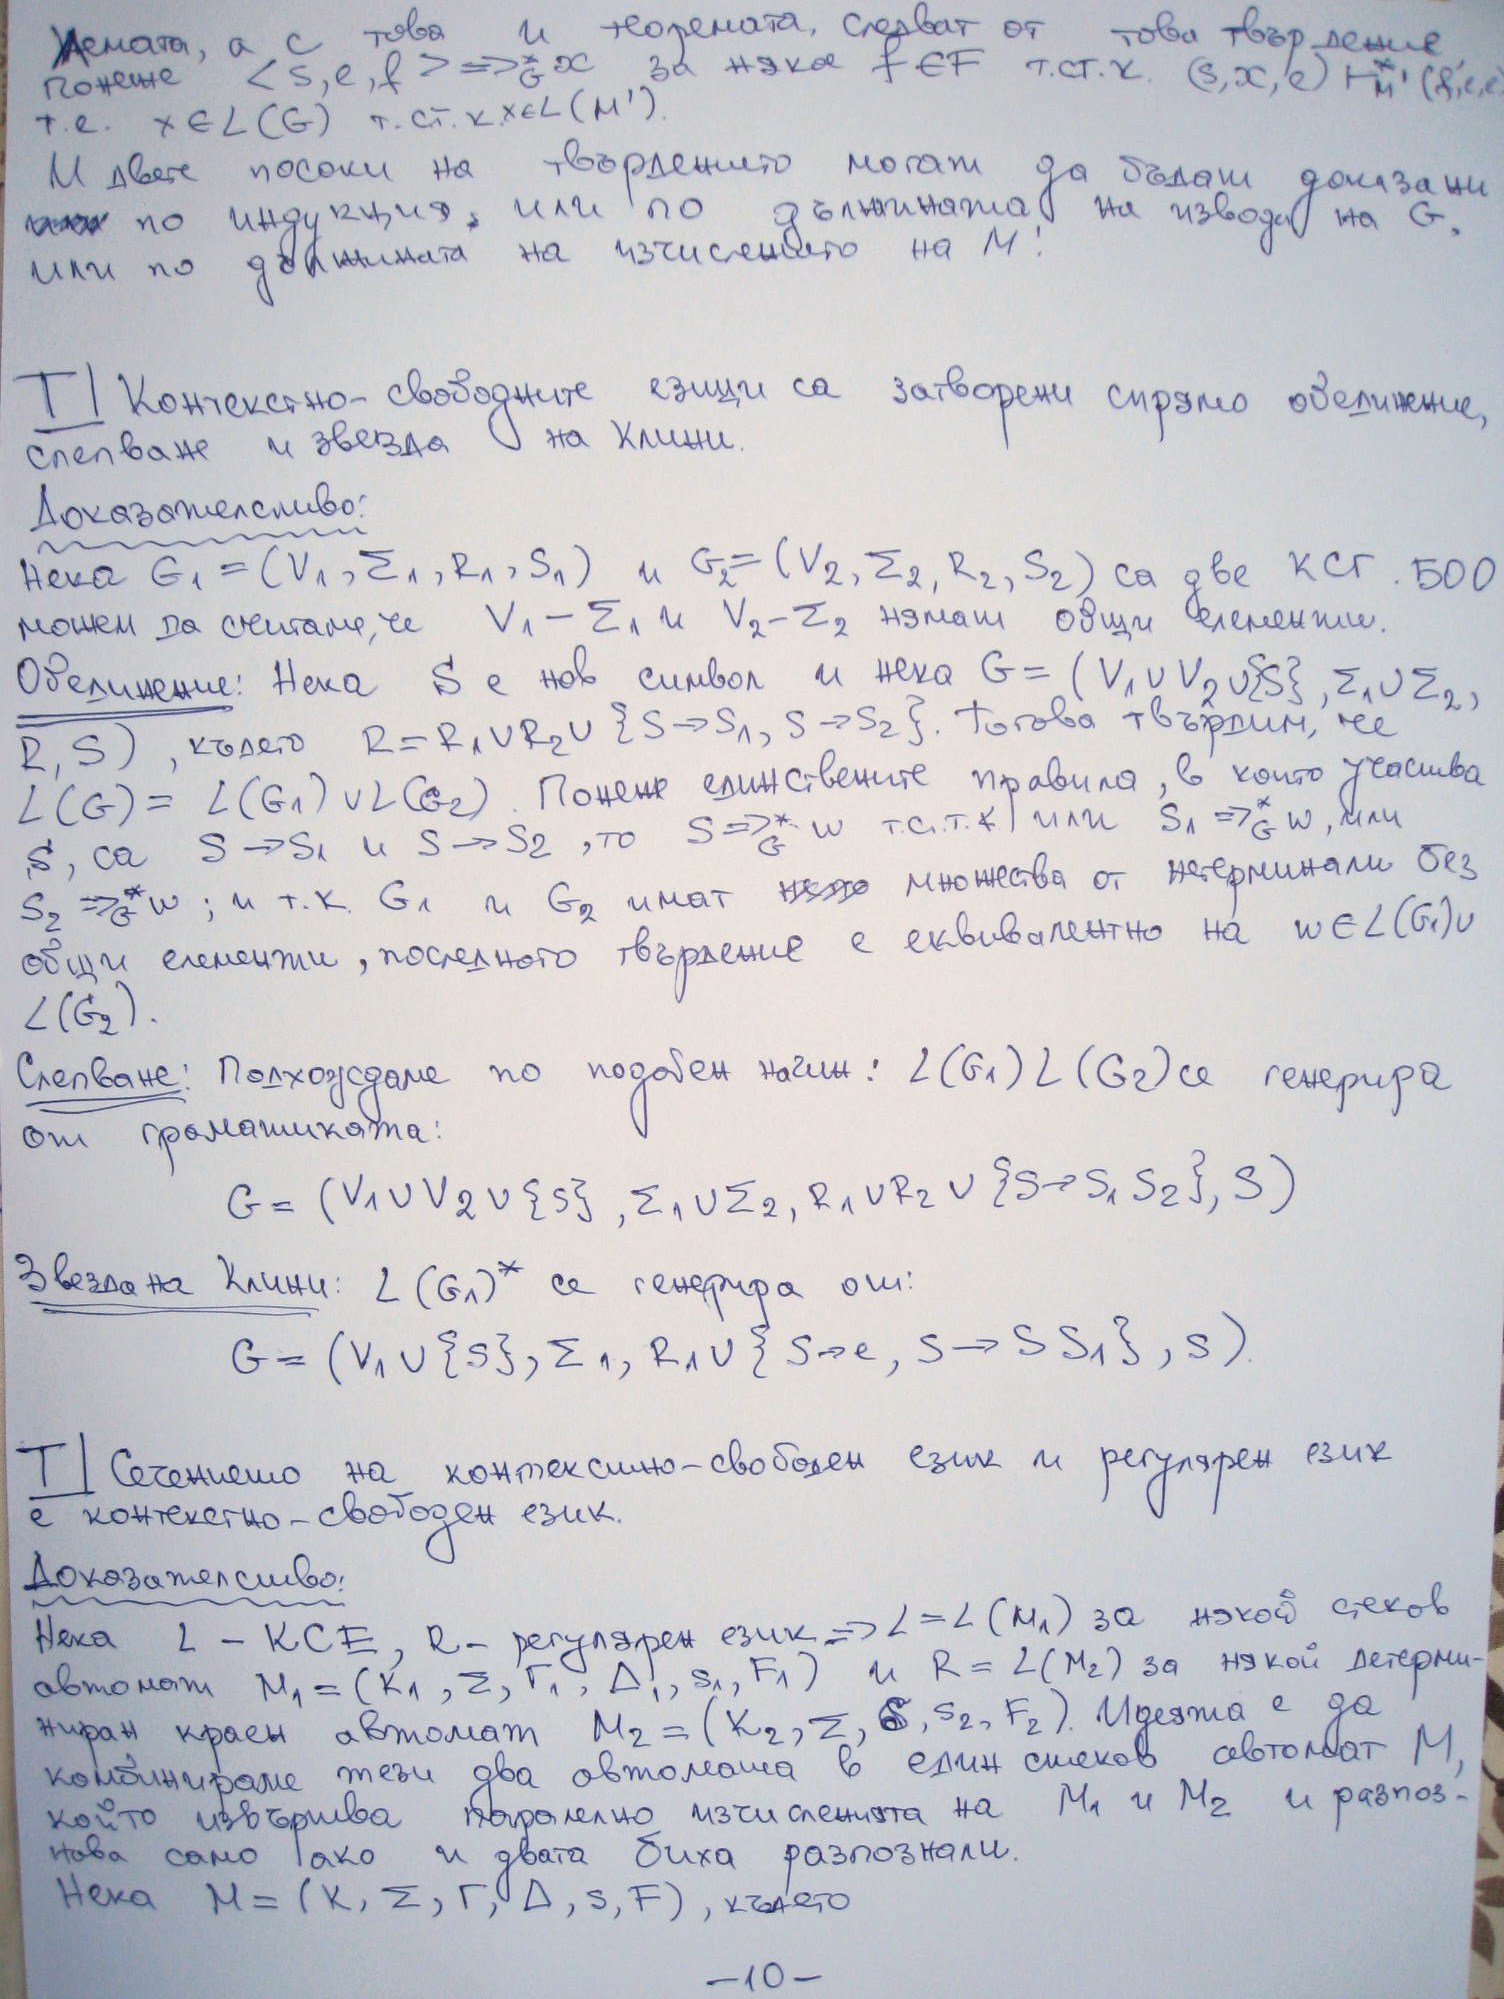 Лемата, а с това и теоремата, следват от това твърдение
понеже <s, e, f> =>*G x за някое f ∈ F т.ст.к. (s, x, e) ⊢*M' (f, e, e)
т.е. x ∈ L(G) т.ст.к. x ∈ L(M').
И двете посоки на твърдението могат да бъдат доказани
по индукция, или по дължината на извода на G,
или по дължината на изчислението на M'.
T| Контекстно-свободните езици са затворени спрямо обединение,
слепване и звезда на Клини.
Доказателство:
Нека G1 = (V1, Σ1, R1, S1) и G2 = (V2, Σ2, R2, S2) са две КСГ. БОО
можем да считаме, че V1 - Σ1 и V2 - Σ2 нямат общи елементи.
Обединение: Нека S е нов символ и нека G = (V1 ∪ V2 ∪ {S}, Σ1 ∪ Σ2,
R, S), където R = R1 ∪ R2 ∪ {S → S1, S → S2}. Тогава твърдим, че
L(G) = L(G1) ∪ L(G2). Понеже единствените правила, в които участва
S, са S → S1 и S → S2, то S =>*G w т.с.т.к. или S1 =>*G w, или
S2 =>*G w; и т.к. G1 и G2 имат множества от нетерминали без
общи елементи, последното твърдение е еквивалентно на w ∈ L(G1) ∪
L(G2).
Слепване: Подхождаме по подобен начин: L(G1) L(G2) се генерира
от граматиката:
G = (V1 ∪ V2 ∪ {S}, Σ1 ∪ Σ2, R1 ∪ R2 ∪ {S → S1 S2}, S)
Звезда на Клини: L(G1)* се генерира от:
G = (V1 ∪ {S}, Σ1, R1 ∪ {S → e, S → S S1}, S).
T| Сечението на контекстно-свободен език и регулярен език
е контекстно-свободен език.
Доказателство:
Нека L - КСЕ, R - регулярен език => L = L(M1) за някой стеков
автомат M1 = (K1, Σ, Γ1, Δ1, s1, F1) и R = L(M2) за някой детерми-
ниран краен автомат M2 = (K2, Σ, δ, s2, F2). Идеята е да
комбинираме тези два автомата в един стеков автомат M,
който извършва паралелно изчисленията на M1 и M2 и разпоз-
нава само ако и двата биха разпознали.
Нека M = (K, Σ, Γ, Δ, s, F), където
-10-